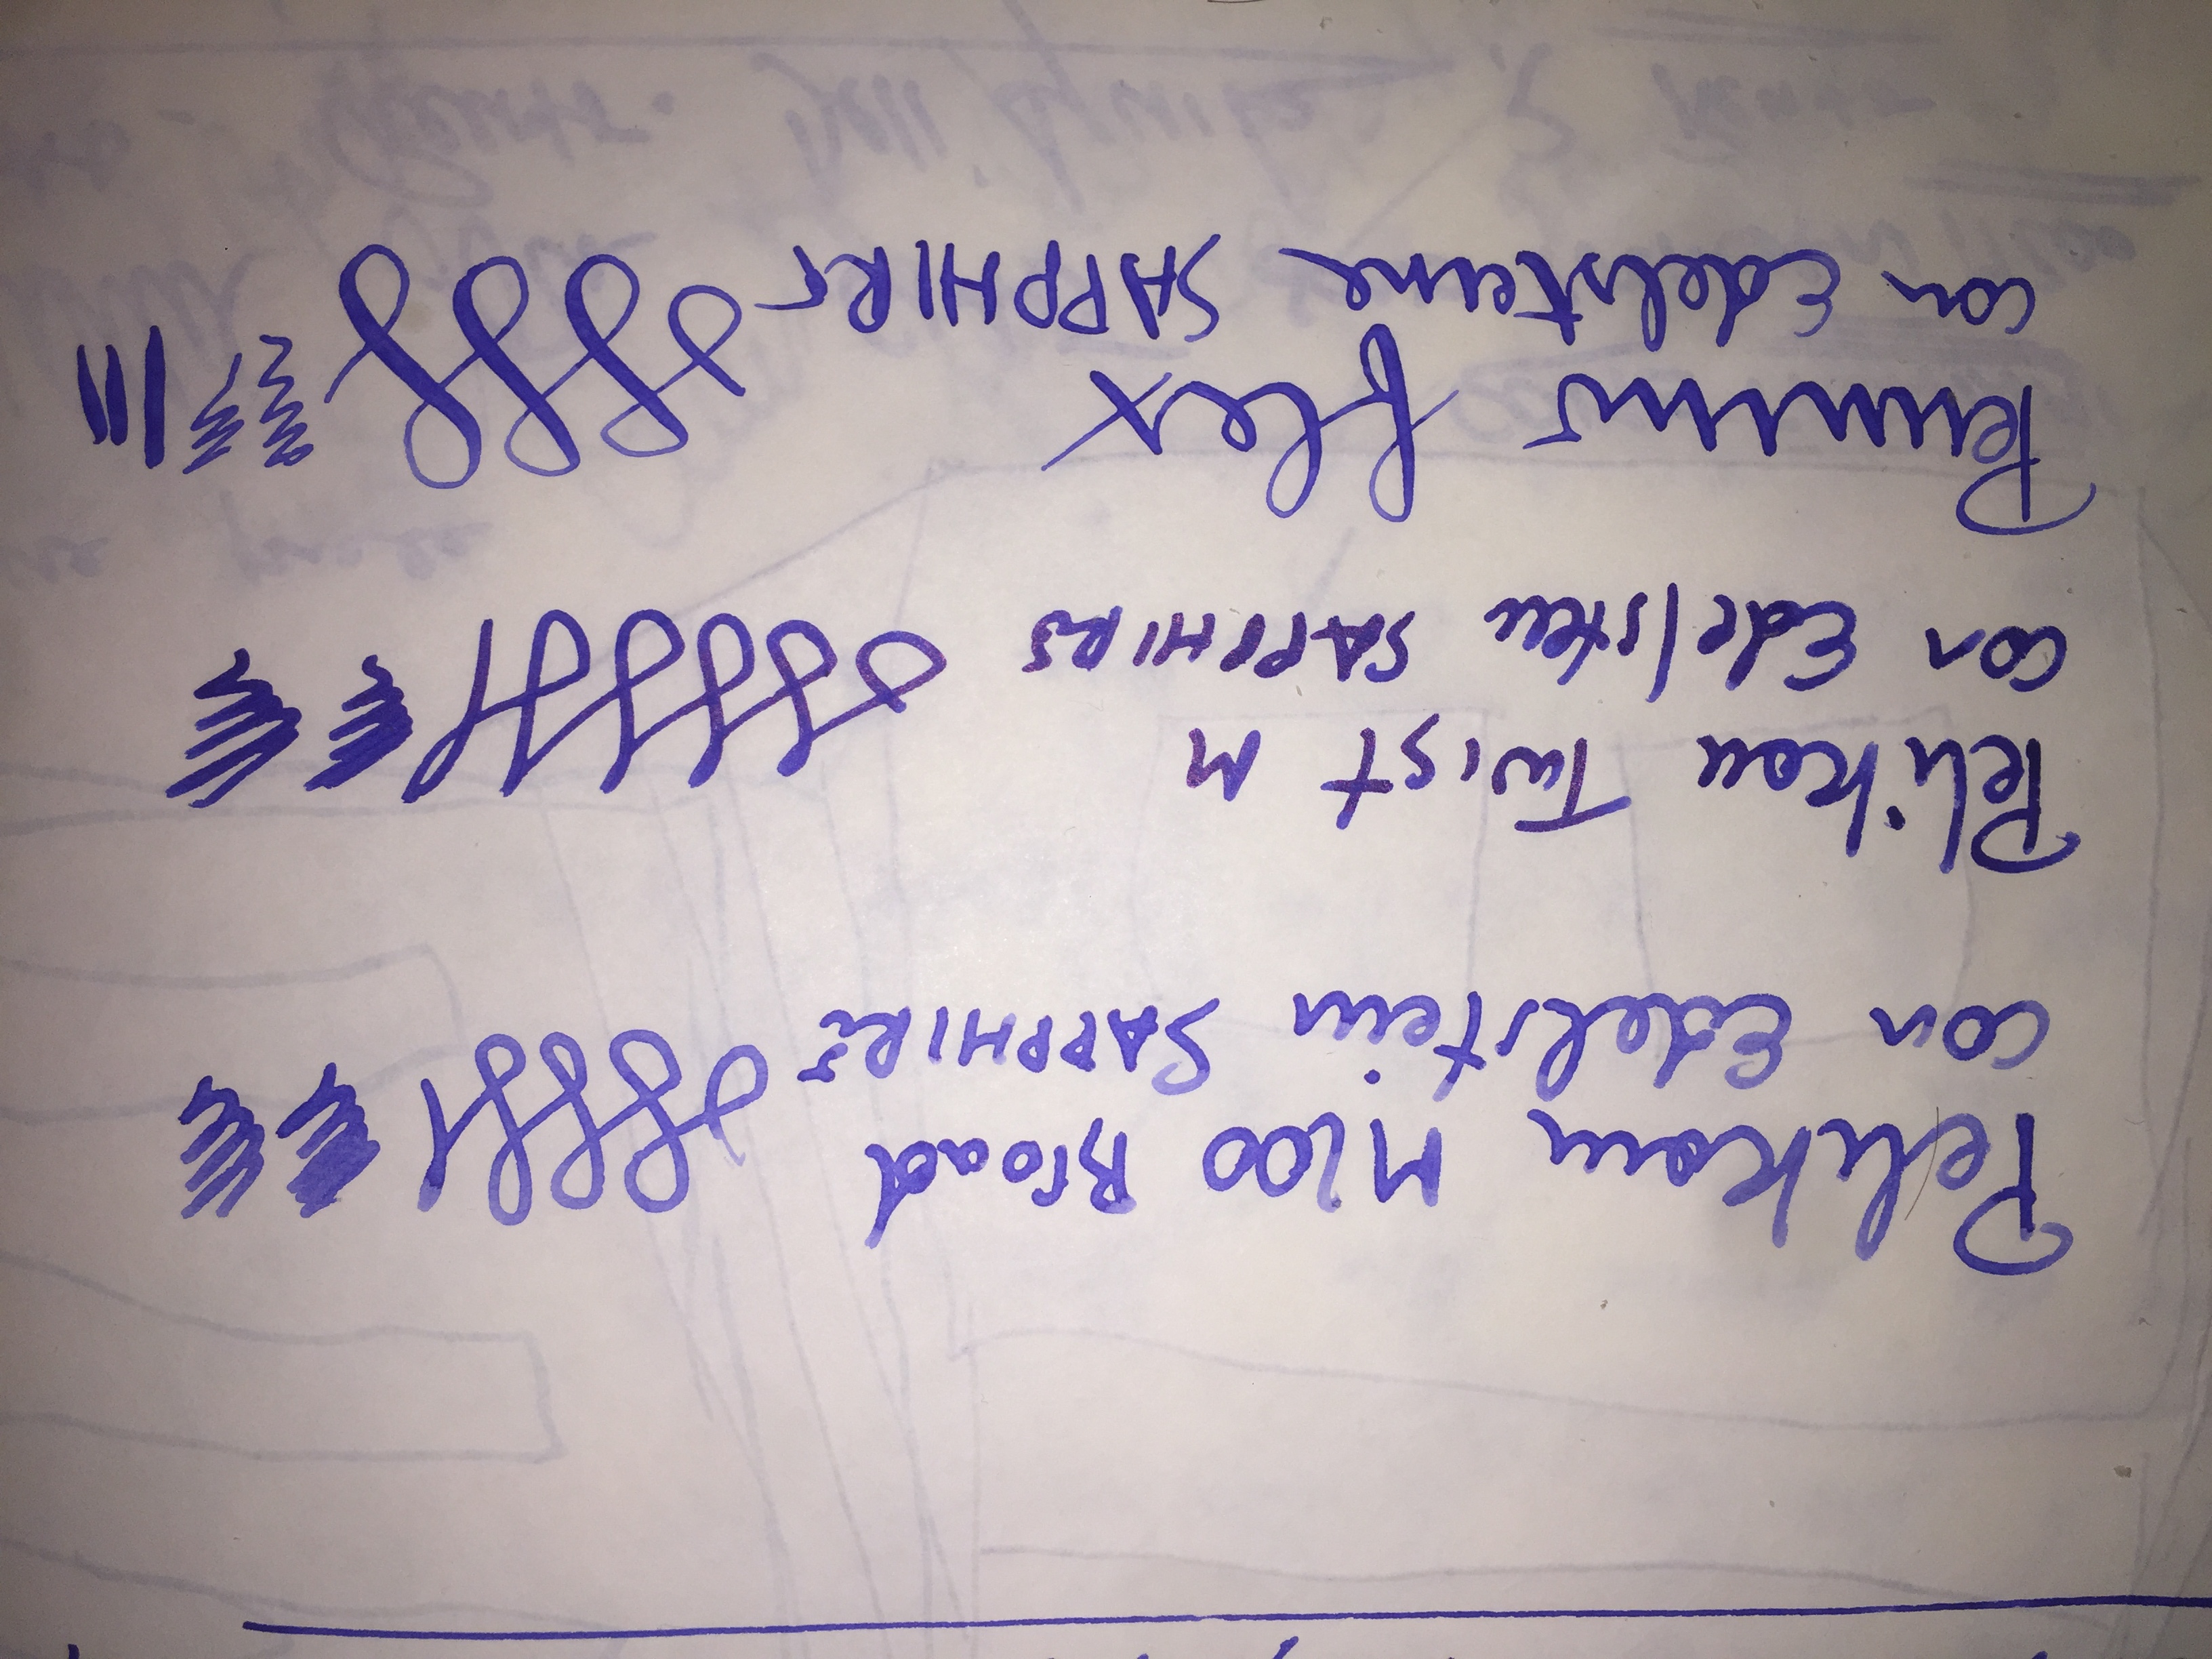 Pelikan M200 Broad
con Edelstein SAPPHIRE
Pelikan Twist M
con Edelstein SAPPHIRE
flex
con Edelsteine SAPPHIRE